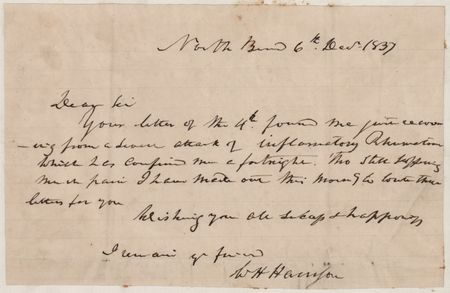 North Bend 6th. Dec. 1837
Dear Sir
Your letter of the 4th. found me just recover
-ing from a severe attack of inflamatory Rheumatism
which has confined me a fortnight. Tho still suffering
much pain I have made out this morng to write three
letters for you
Wishing you all & happiness
I remain yr friend
W H Harrison